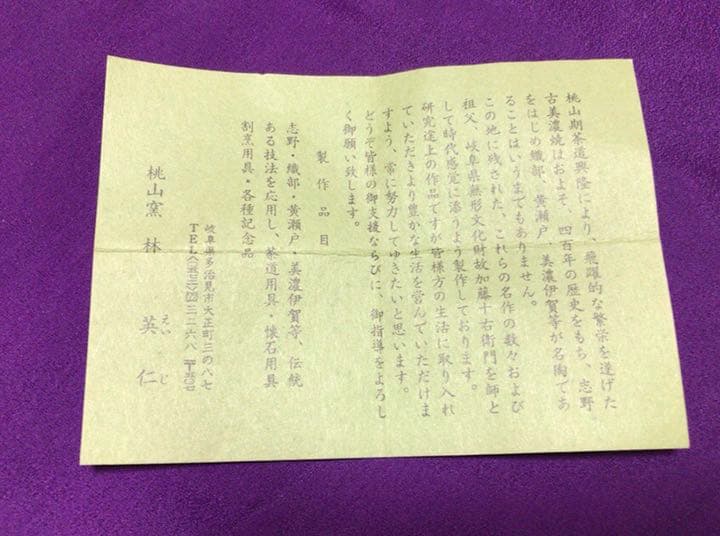 桃山期茶道興隆により、飛躍的な繁栄を遂げた
古美濃焼はおよそ、四百年の歴史をもち、志野
をはじめ織部、黄瀬戸、美濃伊賀等が名陶であ
ることはいうまでもありません。
この地に残された、これらの名作の数々および
祖父、岐阜県無形文化財故加藤十右衛門を師と
して時代感覚に添うよう製作しております。
研究途上の作品ですが皆様方の生活に取り入れ
ていただきより豊かな生活を営んでいただけま
すよう、常に努力してゆきたいと思います。
どうぞ皆様の御支援ならびに、御指導をよろし
く御願い致します。
製作品目
志野・織部・黄瀬戸・美濃伊賀等、伝統
ある技法を応用し、茶道用具・懐石用具
割烹用具・各種記念品
岐阜県多治見市大正町三の八七
TEL 三二六八
桃山窯 林 英仁
えい じ